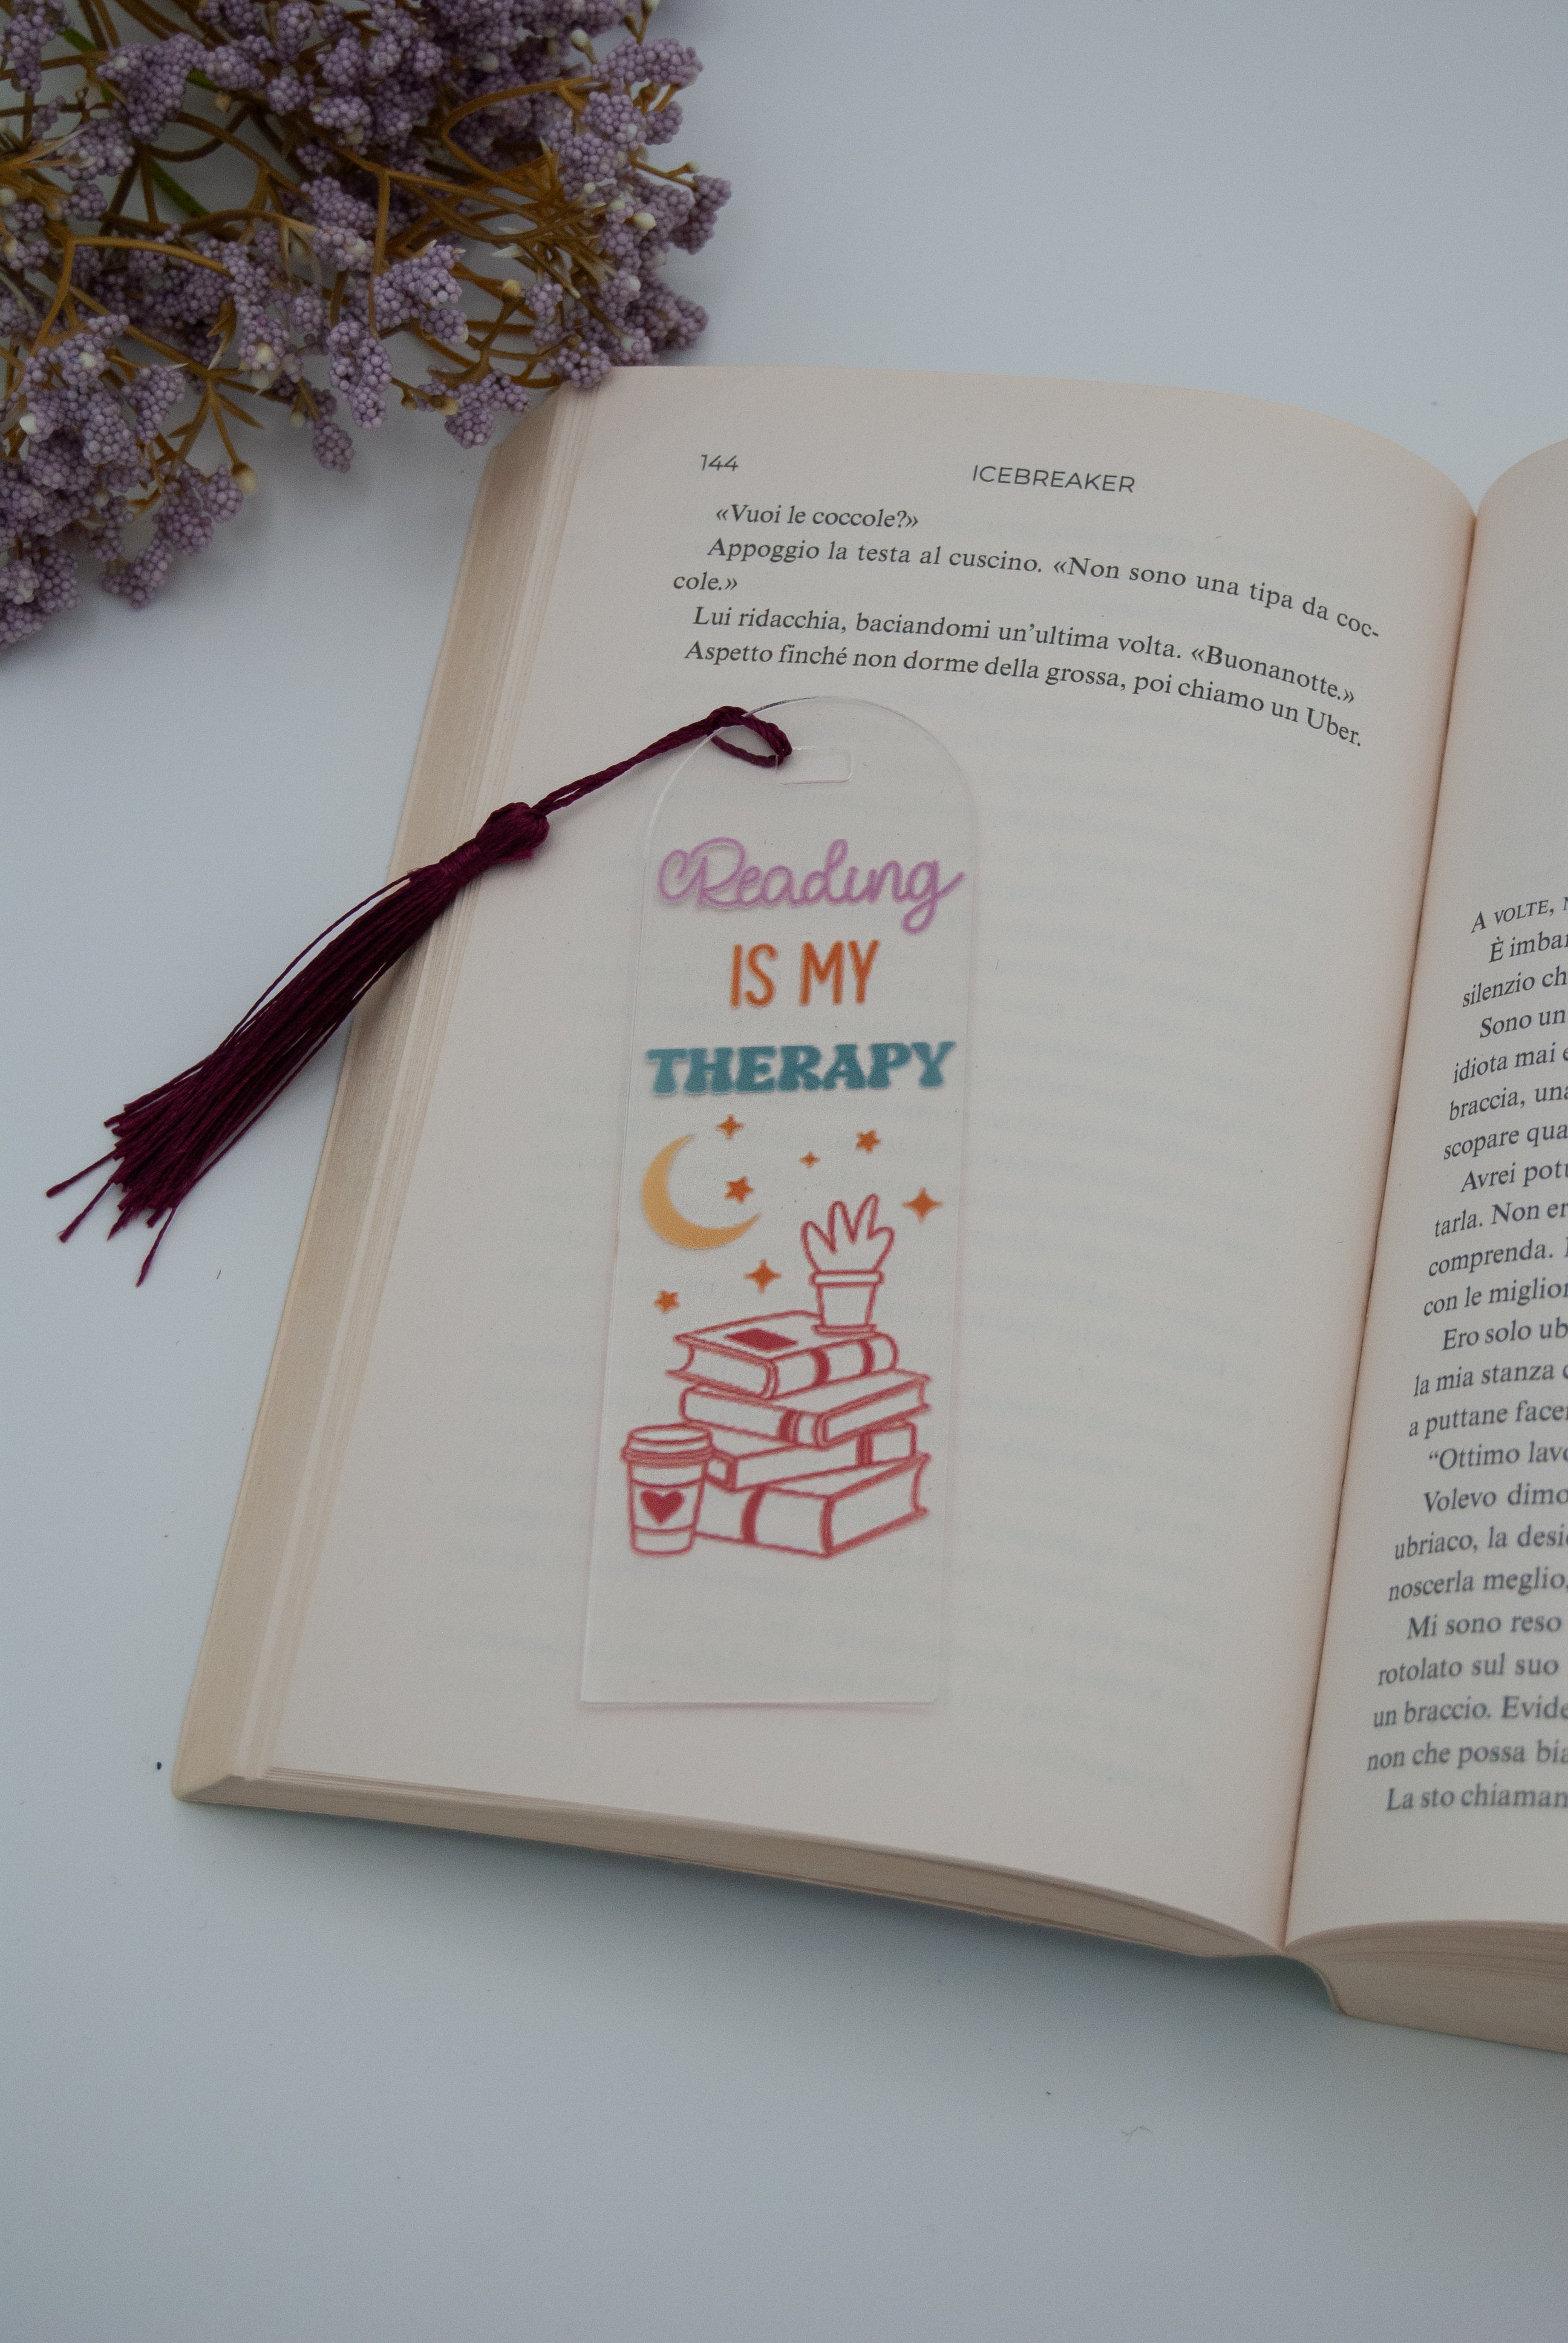 144 ICEBREAKER
«Vuoi le coccole?»
Appoggio la testa al cuscino. «Non sono una tipa da coc-
cole.»
Lui ridacchia, baciandomi un'ultima volta. «Buonanotte.»
Aspetto finché non dorme della grossa, poi chiamo un Uber.
Reading
IS MY
THERAPY
A VOLTE,
È
silenzio
Sono un
idiota mai
braccia,
scopare
Avrei
tarla. Non
comprenda.
con le
Ero solo
la mia stanza
a puttane
“Ottimo
Volevo
ubriaco, la
noscerla meglio,
Mi sono reso
rotolato sul suo
un braccio.
non che possa
La sto